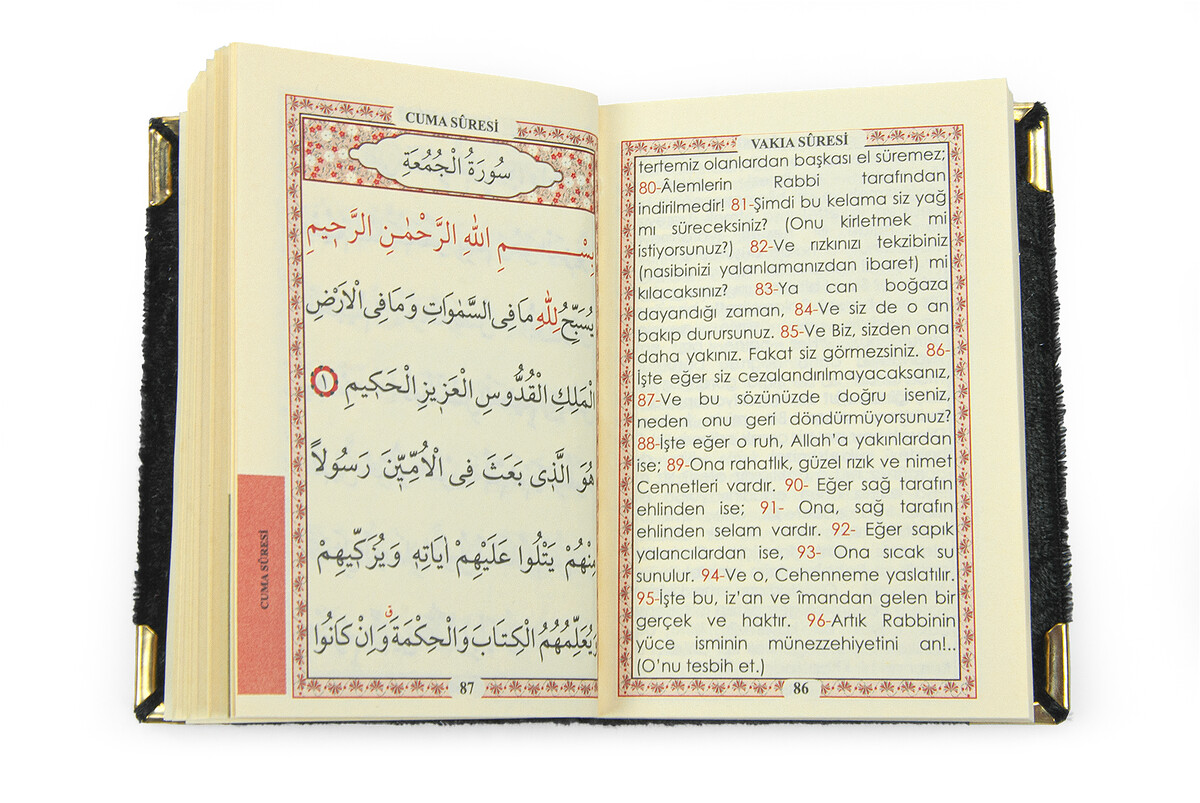 VAKIA SÛRESİ
tertemiz olanlardan başkası el süremez;
80-Âlemlerin Rabbi tarafından
indirilmedir! 81-Şimdi bu kelama siz yağ
mı süreceksiniz? (Onu kirletmek mi
istiyorsunuz?) 82-Ve rızkınızı tekzibiniz
(nasibinizi yalanlamanızdan ibaret) mi
kılacaksınız? 83-Ya can boğaza
dayandığı zaman, 84-Ve siz de o an
bakıp durursunuz. 85-Ve Biz, sizden ona
daha yakınız. Fakat siz görmezsiniz. 86-
İşte eğer siz cezalandırılmayacaksanız,
87-Ve bu sözünüzde doğru iseniz,
neden onu geri döndürmüyorsunuz?
88-İşte eğer o ruh, Allah’a yakınlardan
ise; 89-Ona rahatlık, güzel rızık ve nimet
Cennetleri vardır. 90- Eğer sağ tarafın
ehlinden ise; 91- Ona, sağ tarafın
ehlinden selam vardır. 92- Eğer sapık
yalancılardan ise, 93- Ona sıcak su
sunulur. 94-Ve o, Cehenneme yaslatılır.
95-İşte bu, iz’an ve îmandan gelen bir
gerçek ve haktır. 96-Artık Rabbinin
yüce isminin münezzehiyetini an!..
(O’nu tesbih et.)
86
CUMA SÛRESİ
سُورَةُ الْجُمُعَةِ
بِسْمِ اللّٰهِ الرَّحْمٰنِ الرَّحِيمِ
يُسَبِّحُ لِلّٰهِ مَا فِى السَّمٰوَاتِ وَمَا فِى الْاَرْضِ
الْمَلِكِ الْقُدُّوسِ الْعَزِيزِ الْحَكِيمِ ١
هُوَ الَّذِى بَعَثَ فِى الْاُمِّيِّنَ رَسُولًا
مِنْهُمْ يَتْلُوا عَلَيْهِمْ اٰيَاتِهِ وَيُزَكِّيهِمْ
وَيُعَلِّمُهُمُ الْكِتَابَ وَالْحِكْمَةَ ق وَاِنْ كَانُوا
87
CUMA SÛRESİ